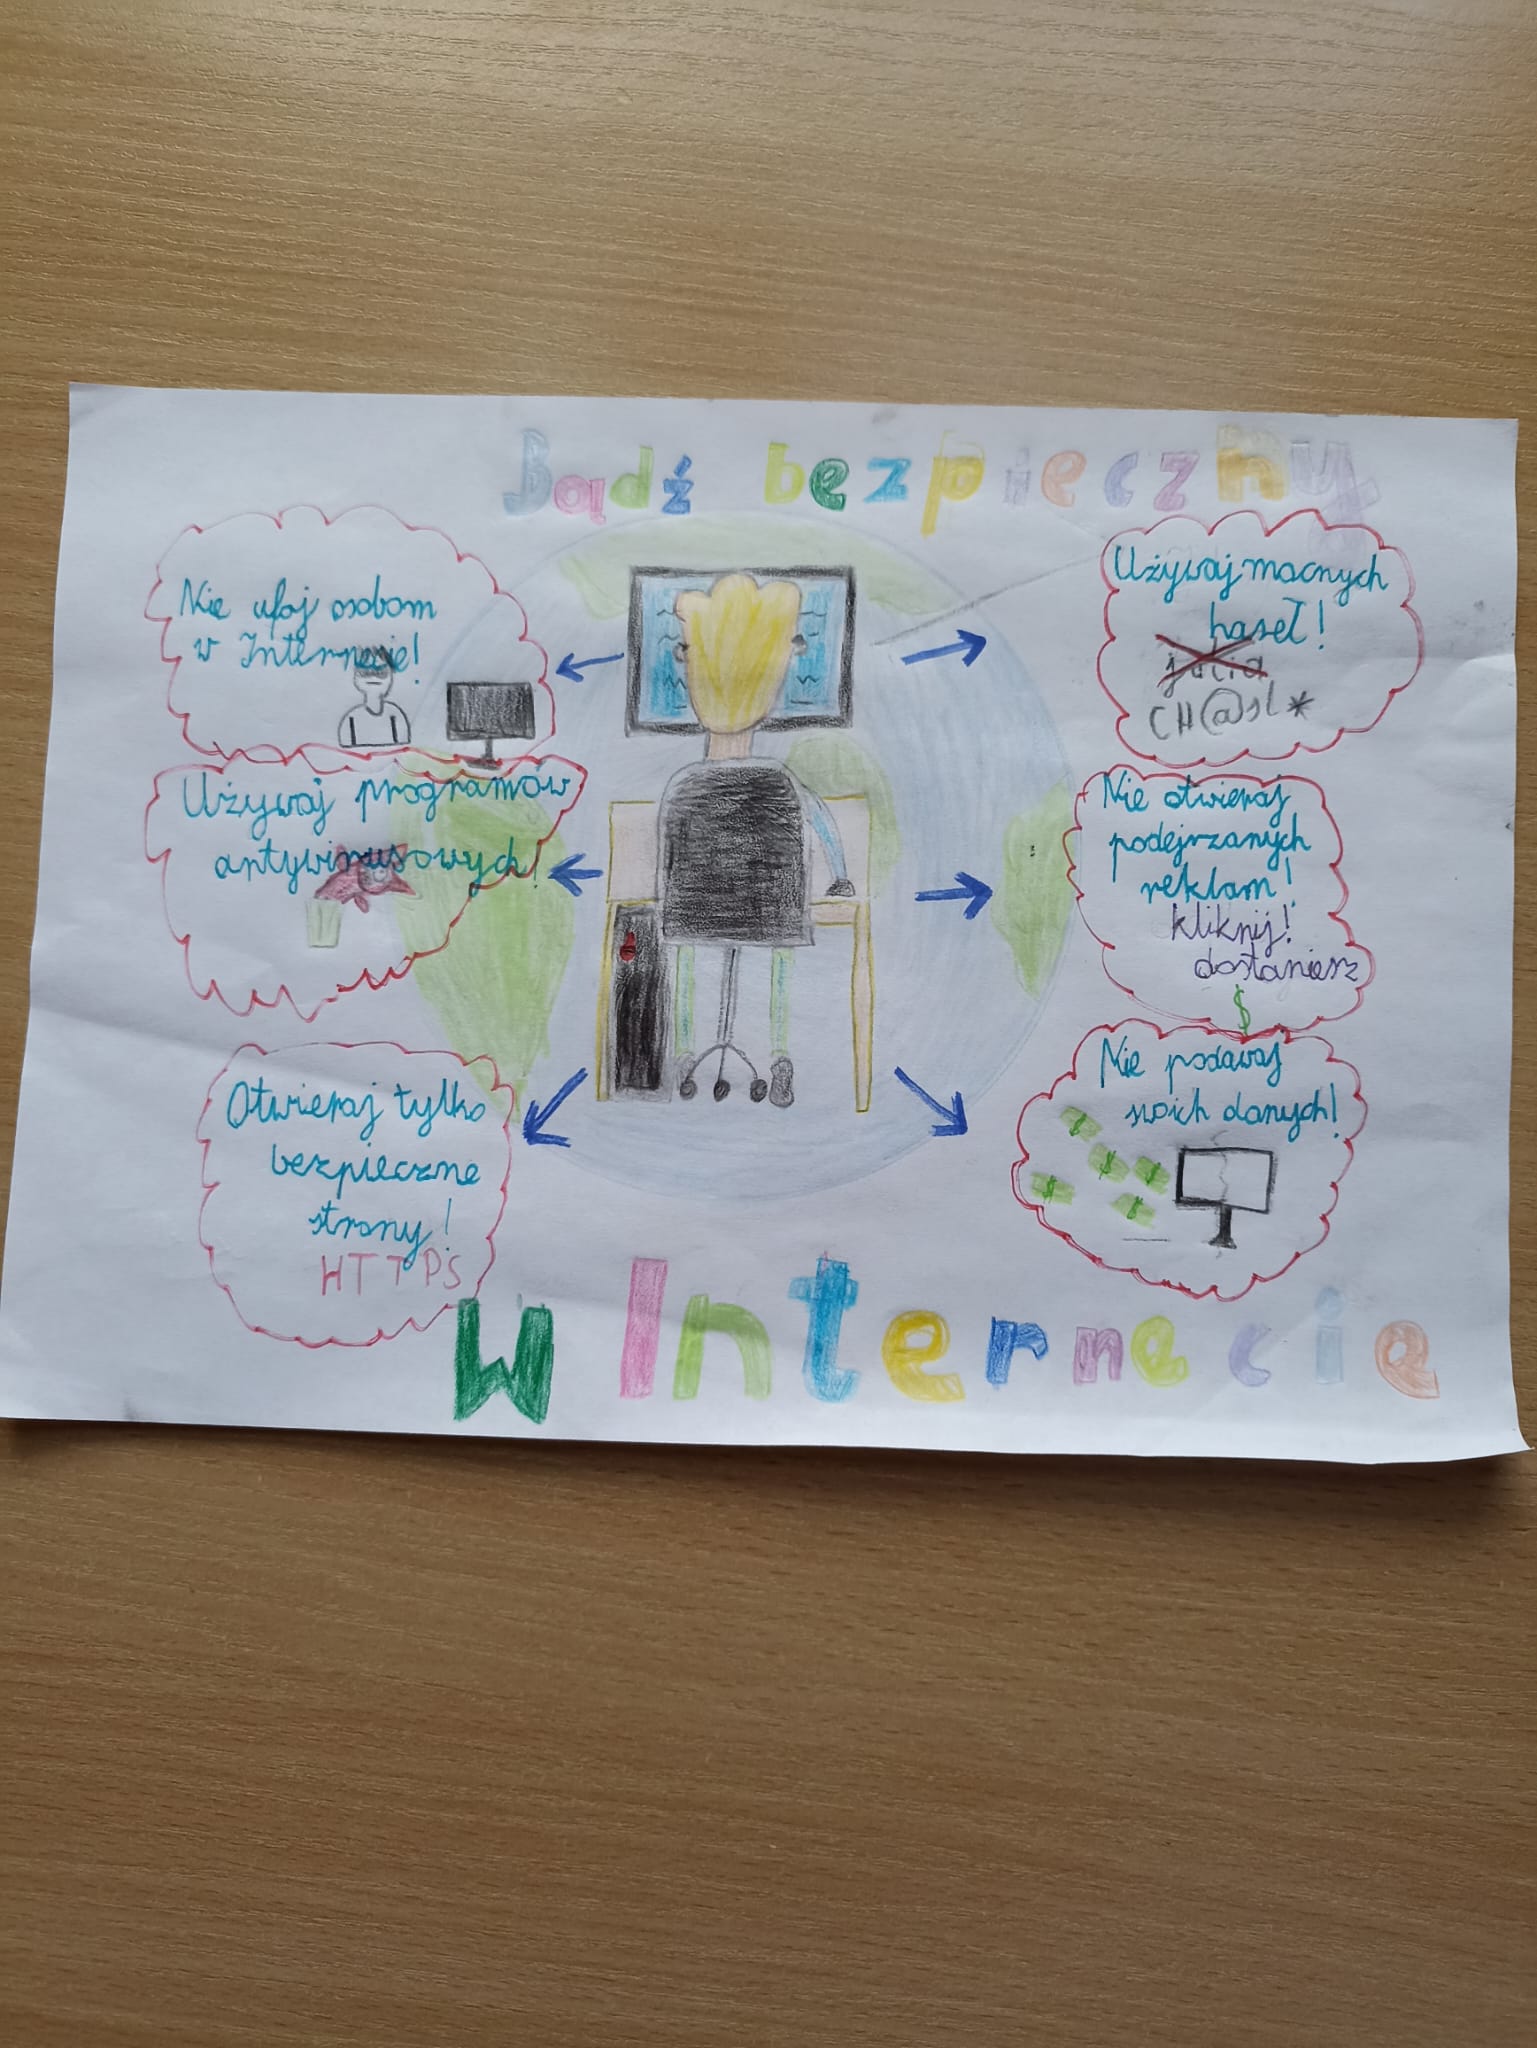 Bądź bezpieczny
Nie ufaj osobom
w Internecie!
Używaj programów
antywirusowych!
Otwieraj tylko
bezpieczne
strony!
HTTPS
Używaj mocnych
haseł!
CH@sl*
Nie otwieraj
podejrzanych
reklam!
kliknij!
dostaniesz
$
Nie podawaj
swoich danych!
$ $ $
$ $
w Internecie